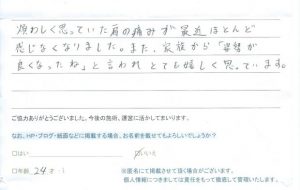 煩わしく思っていた肩の痛みが最近ほとんど
感じなくなりました。また、家族から「姿勢が
良くなったね」と言われとても嬉しく思っています。
ご協力ありがとうございました。今後の施術、運営に活かしてまいります。
なお、HP・ブログ・紙面などに掲載する場合、お名前を載せてもよろしいでしょうか?
□はい
☑いいえ
□年齢 24才
※匿名にて掲載させて頂く場合がございます。
個人情報につきましては責任をもって徹底して管理いたします。